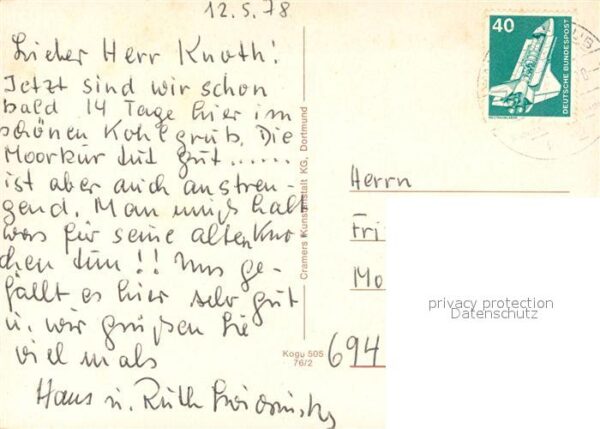 12.5.78
Lieber Herr Knoth!
Jetzt sind wir schon
bald 14 Tage hier im
schönen Kohlgrub. Die
Moorkur tut gut......
ist aber auch anstren-
gend. Man muß halt
was für seine alten Kno
chen tun!! Uns ge-
fällt es hier sehr gut
u. wir grüßen Sie
vielmals
Hans u. Ruth
Cramers Kunstanstalt KG, Dortmund
Kogu 505
76/2
40
DEUTSCHE BUNDESPOST
Herrn
Fri
Mo
694
privacy protection
Datenschutz